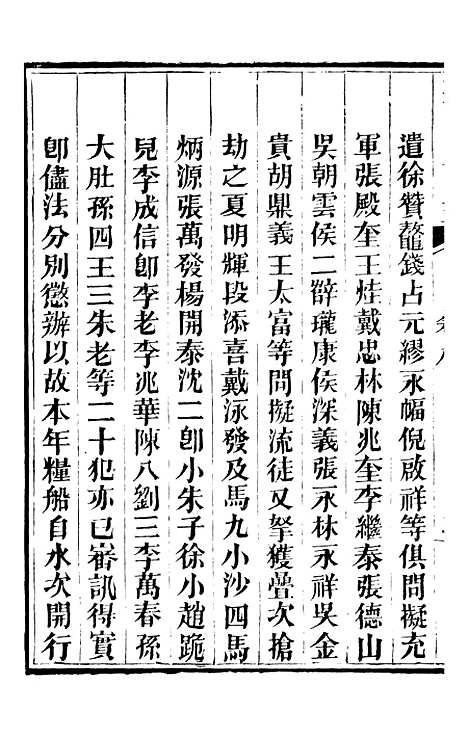 遣徐贊鼇錢占元繆永幅倪啟祥等俱問擬充
軍張殿奎王烓戴忠林陳兆奎李繼泰張德山
吳朝雲侯二辥瓏康侯深義張永林永祥吳金
貴胡鼎義王太富等問擬流徒又拏獲疊次搶
劫之夏明輝段添喜戴泳發及馬九小沙四馬
炳源張萬發楊開泰沈二卽小朱子徐小趙跪
兒李成信卽李老李兆華陳八劉三李萬春孫
大肚孫四王三朱老等二十犯亦已審訊得實
卽儘法分別懲辦以故本年糧船自水次開行